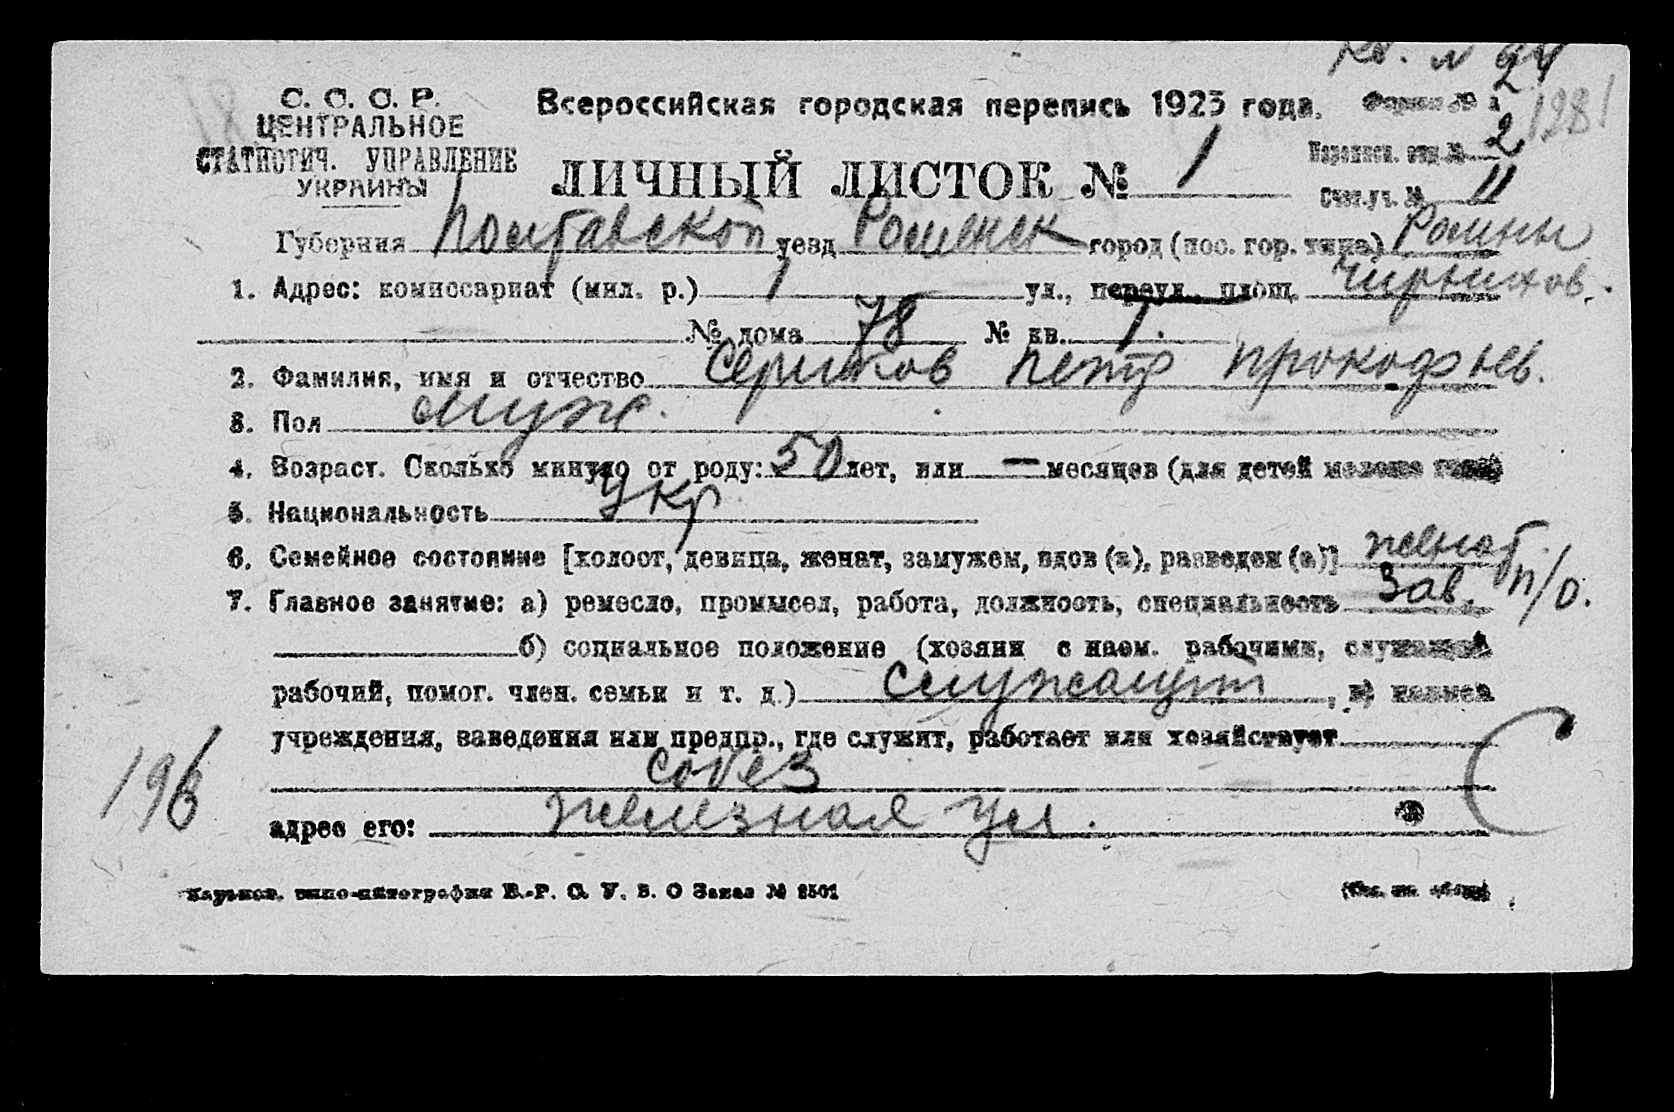 кв. № 24
С. С. С. Р.
ЦЕНТРАЛЬНОЕ
СТАТИСТИЧ. УПРАВЛЕНИЕ
УКРАИНЫ
Всероссийская городская перепись 1923 года.
Форма № 2
1281
ЛИЧНЫЙ ЛИСТОК № 1
Переписн. отд. № 2
Счет. уч. № 11
Губерния Полтавской уезд Роменск город (пос. гор. типа) Ромны
1. Адрес: комиссариат (мил. р.) 1 ул., переул., площ.
№ дома 78 № кв. 1.
2. Фамилия, имя и отчество Петр Прокофьев.
3. Пол муж.
4. Возраст. Сколько минуло от роду: 50 лет, или — месяцев (для детей моложе года)
5. Национальность Укр
6. Семейное состояние [холост, девица, женат, замужем, вдов (а), разведен (а)] женат.
7. Главное занятие: а) ремесло, промысел, работа, должность, специальность Зав. п/о.
б) социальное положение (хозяин с наем. рабочими, служащий
рабочий, помог. член. семьи и т. д.) служащий, в) наимен
учреждения, заведения или предпр., где служит, работает или хозяйствует
собез
адрес его: железная ул.
196
Заказ № 2501